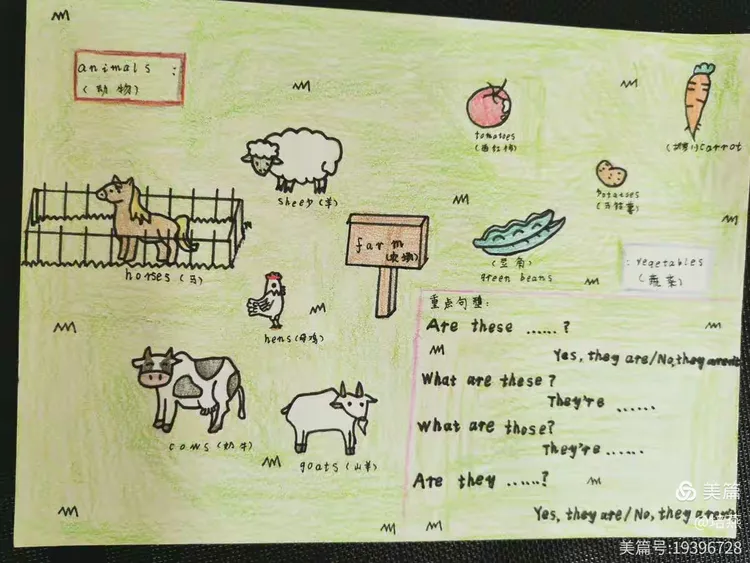 animals :
(动物)
tomatoes
(西红柿)
carrot
potatoes
(马铃薯)
sheep (羊)
farm
(农场)
(豆角)
green beans
: vegetables
(蔬菜)
horses (马)
hens (母鸡)
cows (奶牛)
goats (山羊)
重点句型:
Are these ......?
Yes, they are/No, they aren't
What are these?
They're ......
What are those?
They're ......
Are they ......?
Yes, they are/No, they aren't
美篇
美篇号:19396728